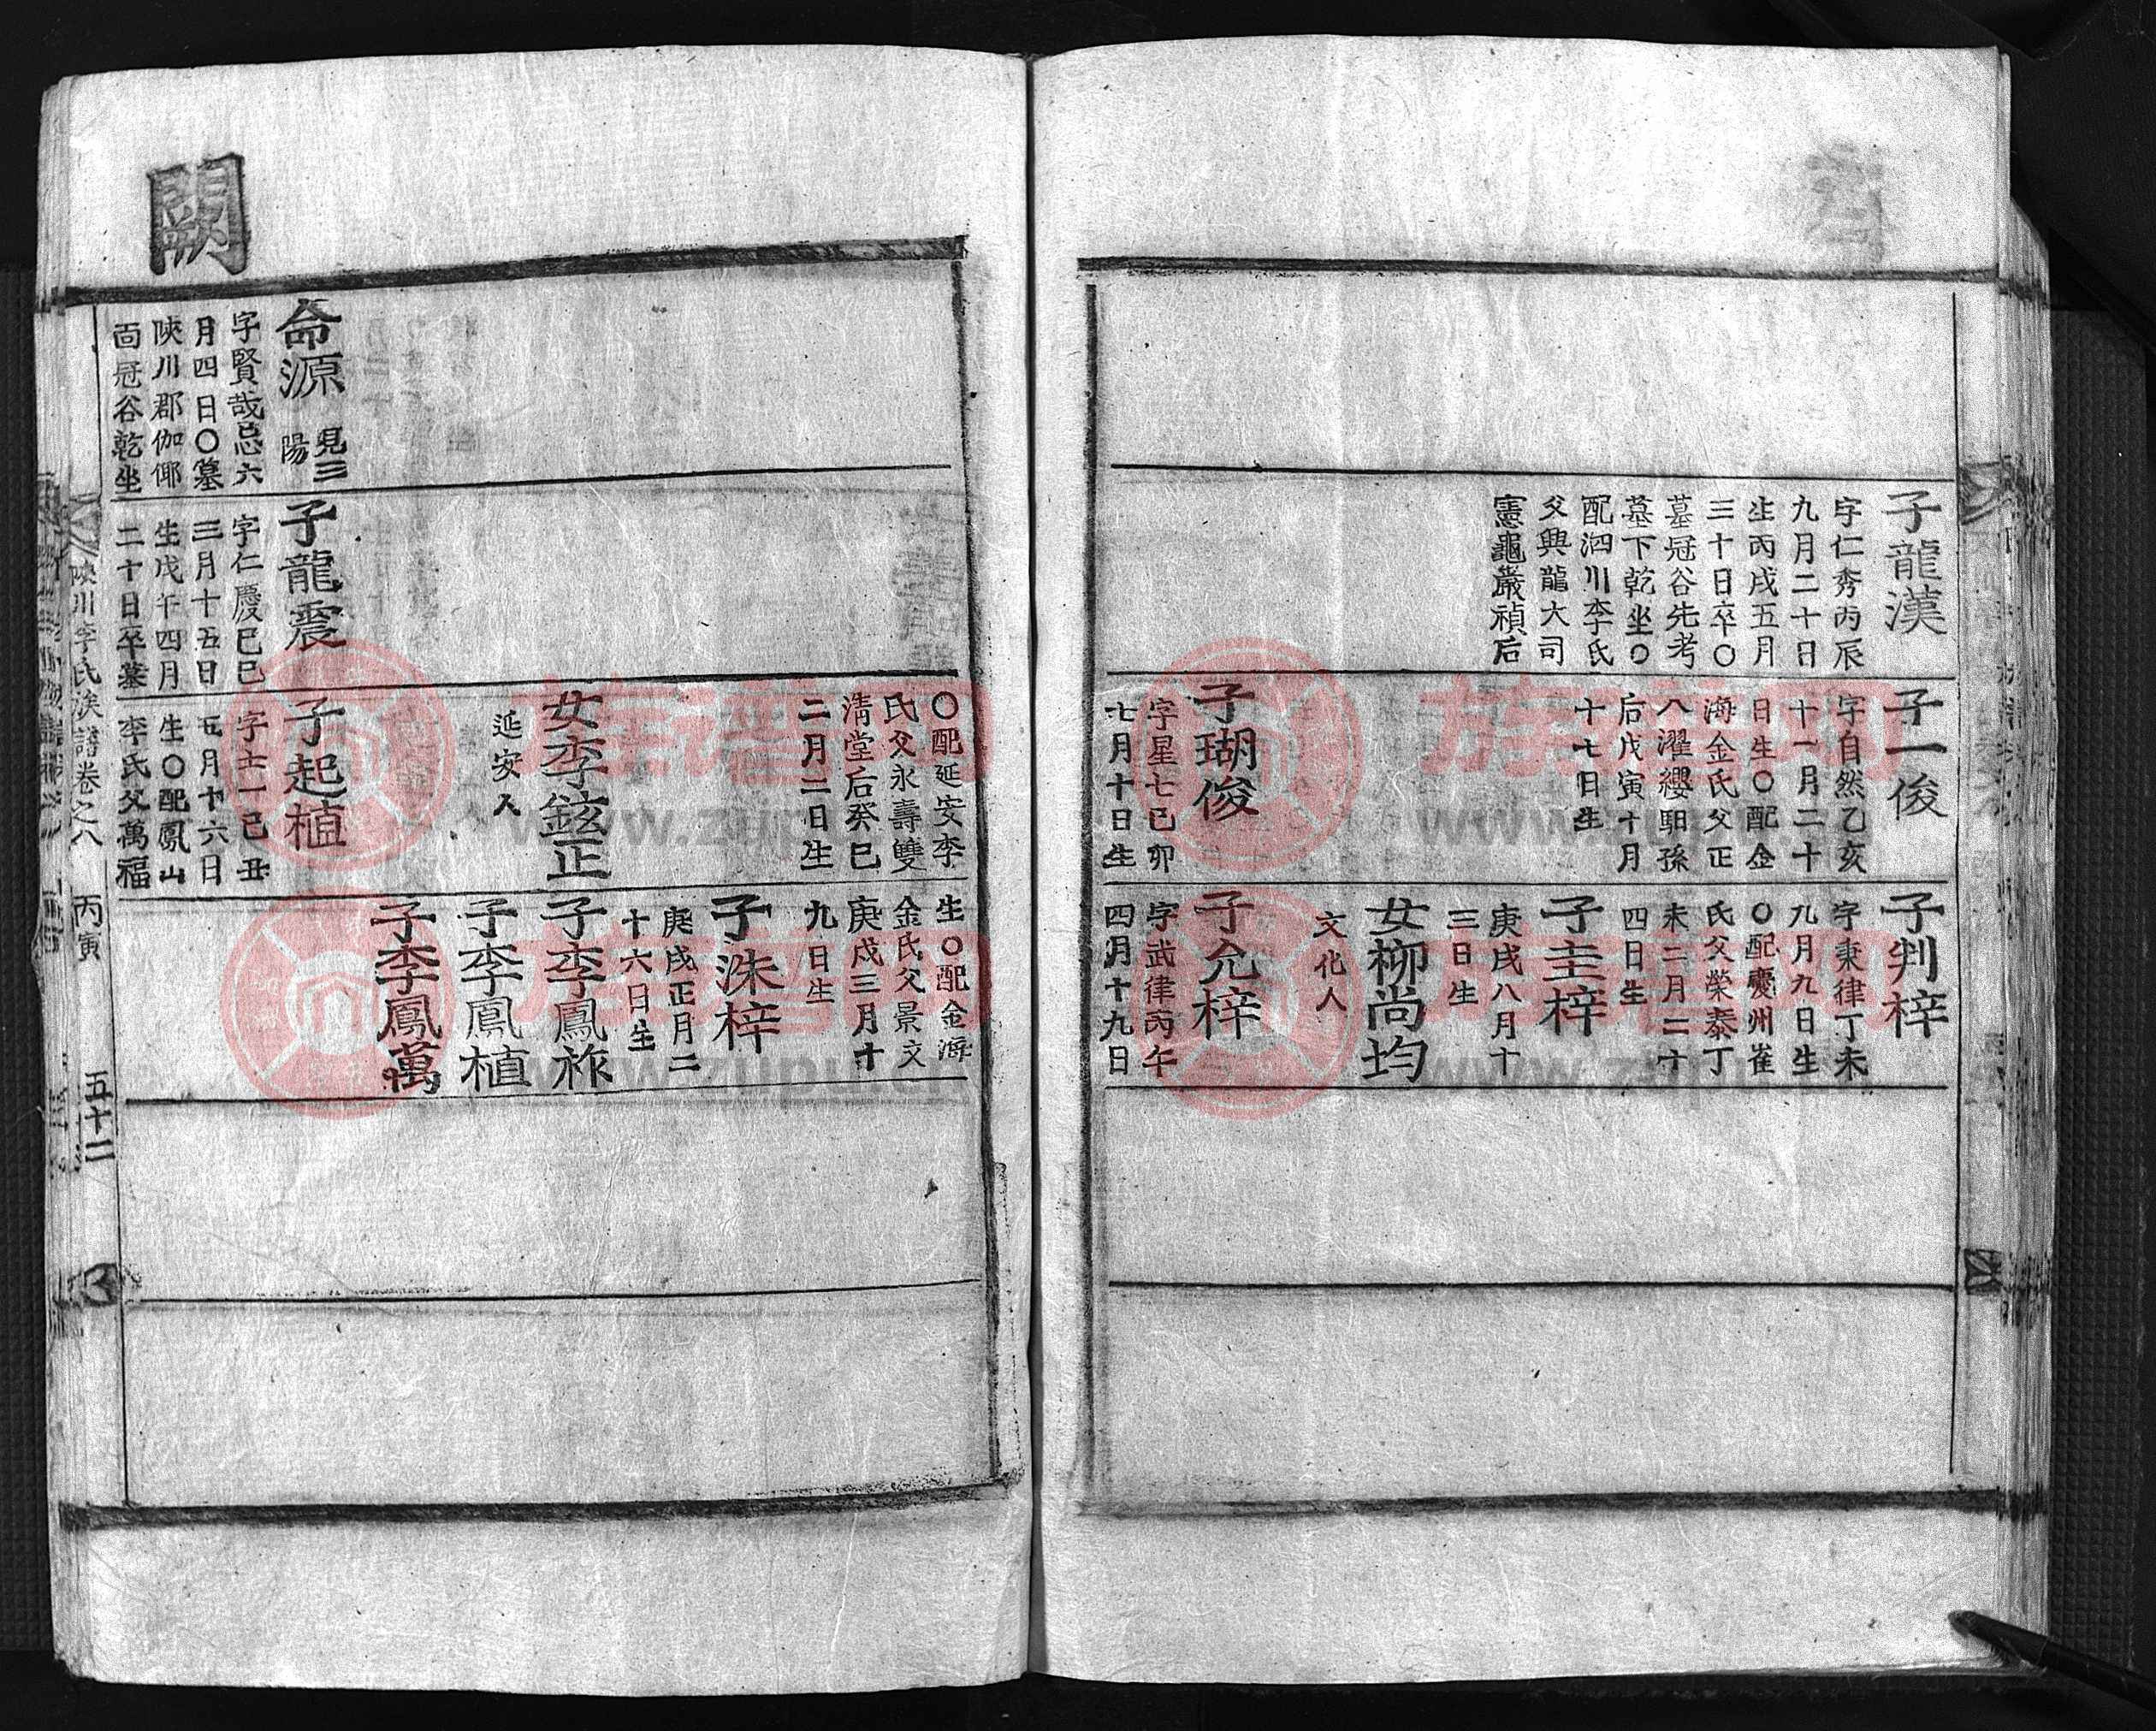 子龍漢
字仁秀丙辰
九月二十日
生丙戌五月
三十日卒〇
墓冠谷先考
墓下乾坐〇
配泗川李氏
父興龍大司
憲龜巖禎后
子一俊
字自然乙亥
十一月二十
日生〇配金
海金氏父正
八濯纓馹孫
后戊寅十月
十七日生
子瑚俊
字星七己卯
七月十日生
子判梓
字秉律丁未
九月九日生
〇配慶州崔
氏父榮泰丁
未二月二十
四日生
子圭梓
庚戌八月十
三日生
女柳尚均
文化人
子允梓
字武律丙午
四月十九日
〇配延安李
氏父永壽雙
清堂后癸巳
二月二日生
女李鉉正
延安人
生〇配金海
金氏父景文
庚戌三月十
九日生
子洙梓
庚戌正月二
十六日生
子李鳳祚
子李鳳植
子李鳳萬
命源
見三
陽
字賢哉忌六
月四日〇墓
陜川郡伽倻
面冠谷乾坐
子龍震
字仁慶己巳
三月十五日
生戊午四月
二十日卒墓
子起植
字士一己丑
五月十六日
生〇配鳳山
李氏父萬福
闕
陜川李氏族譜卷之八 丙寅 五十二
族譜网